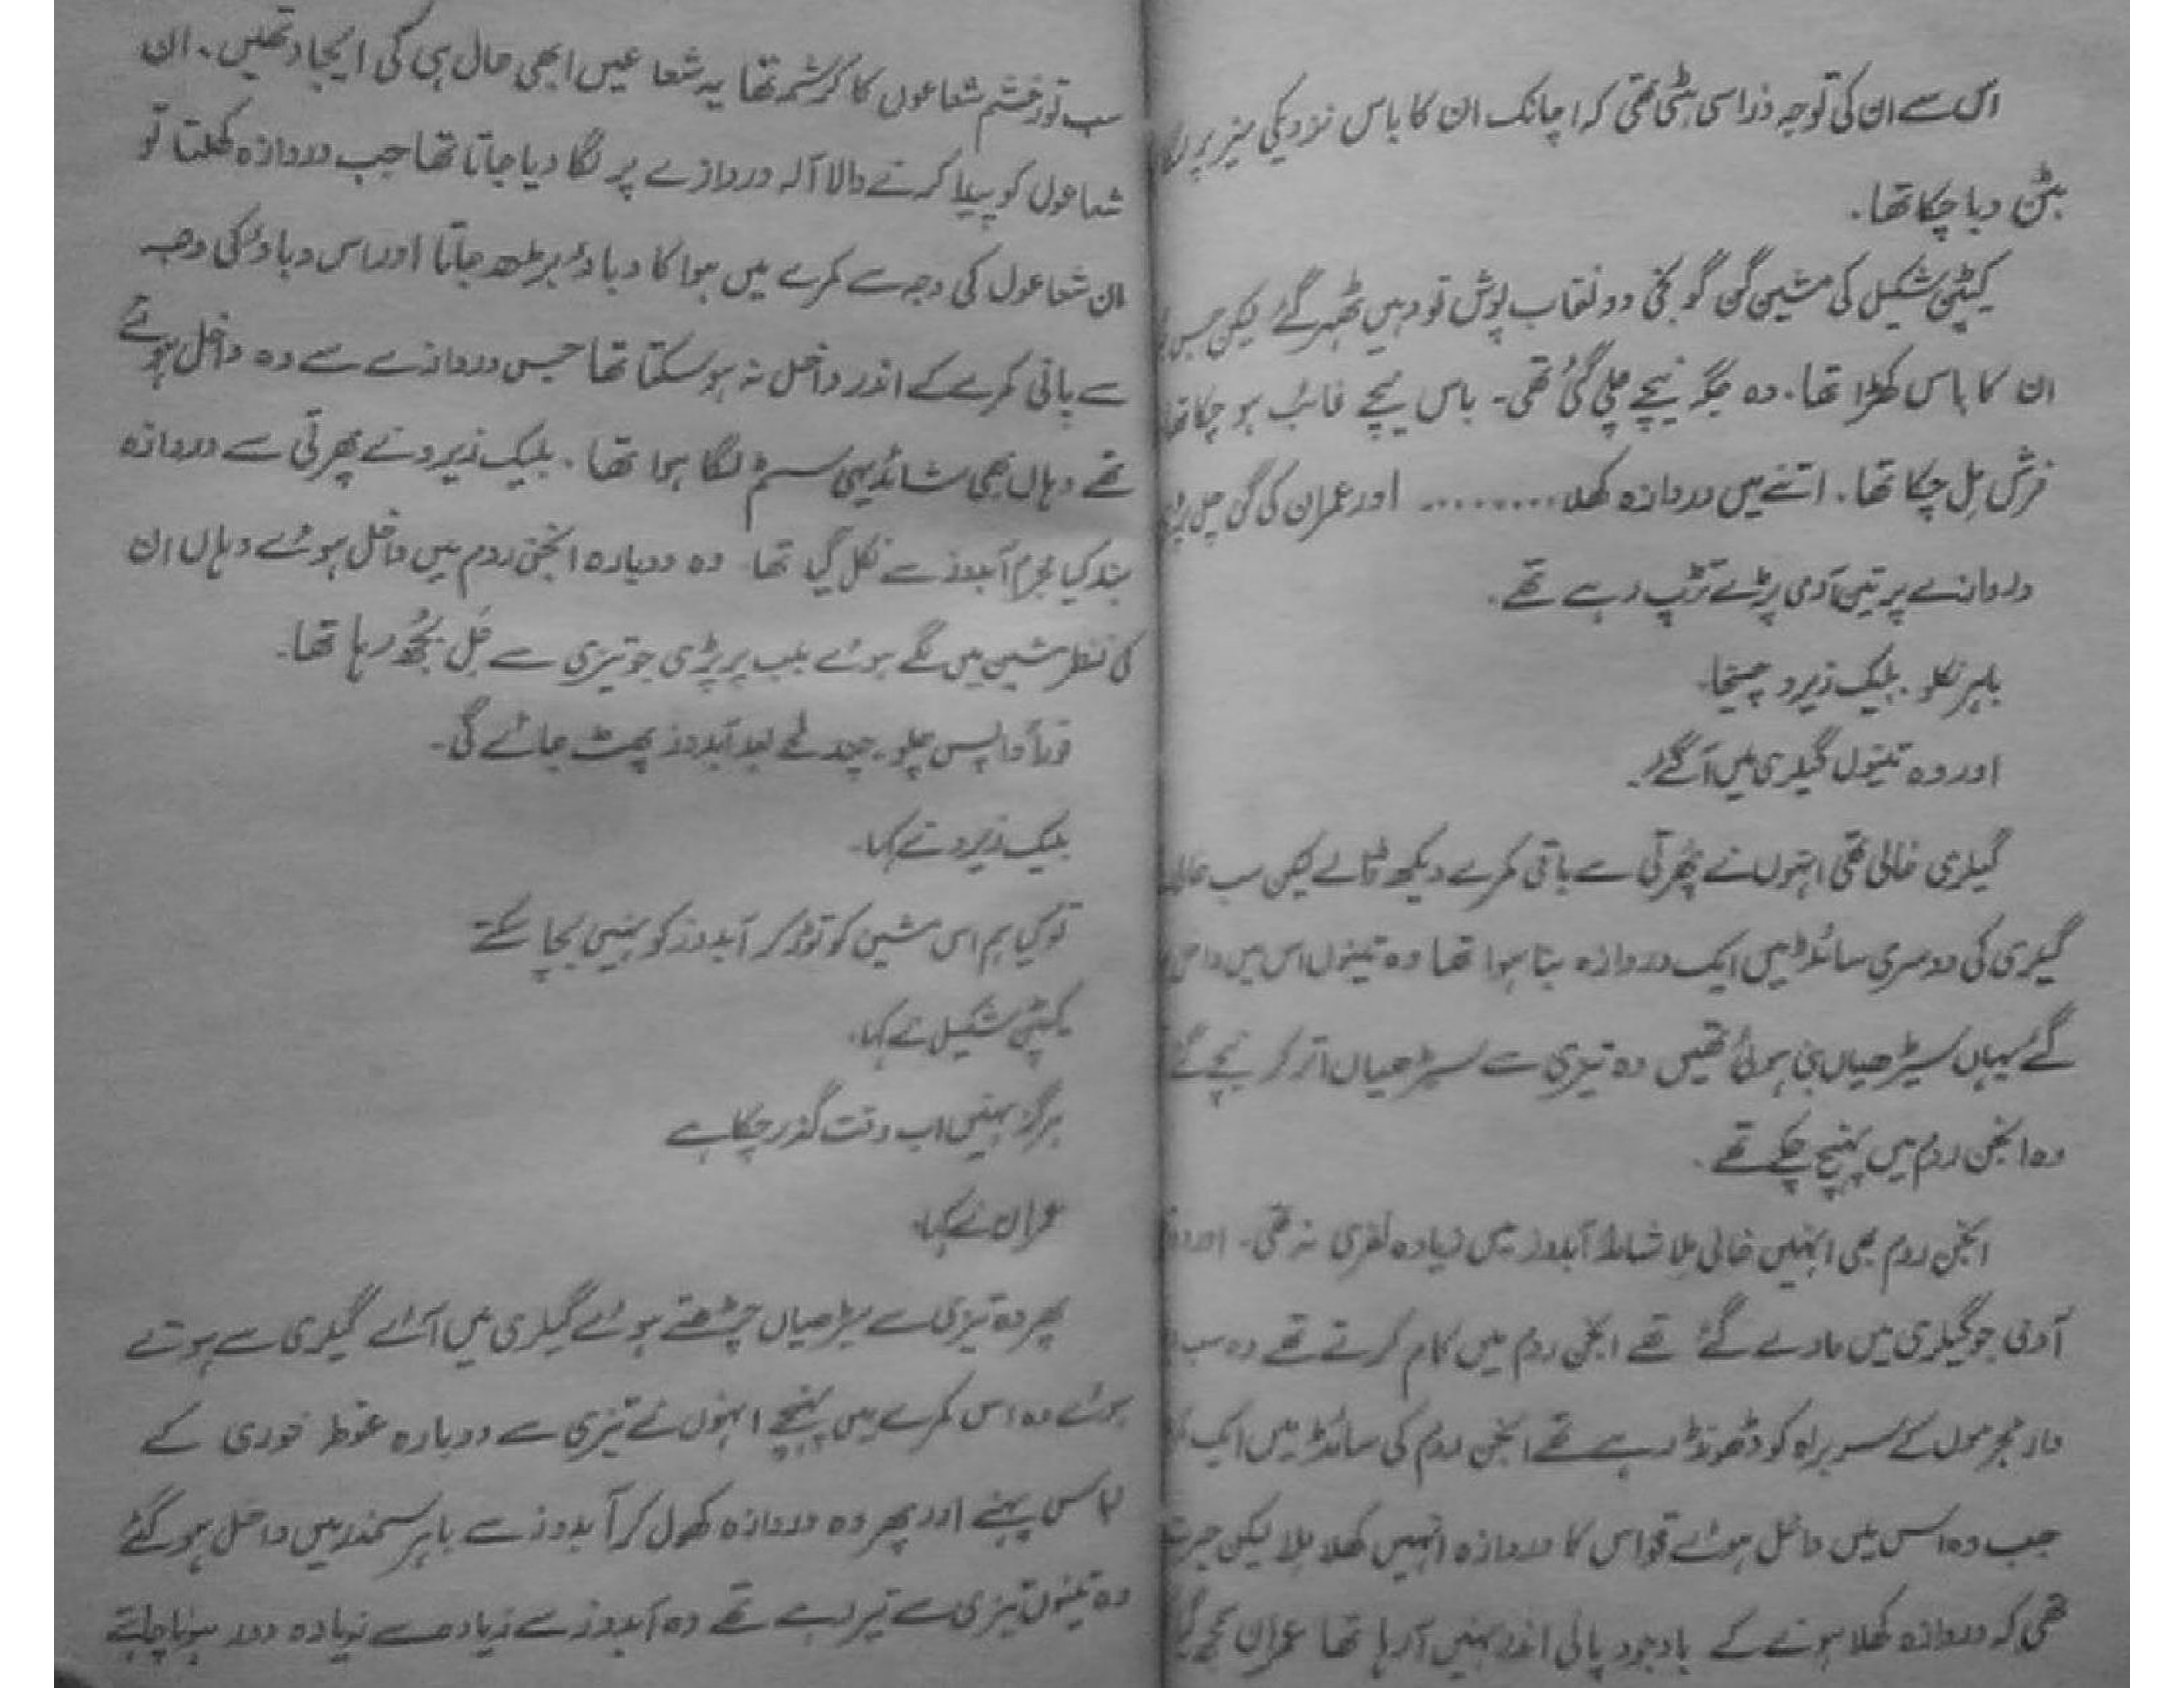 اس سے ان کی توجہ ذرا سی ہٹی تھی کہ اچانک ان کا باس نزدیکی میز پر لگا
بٹن دبا چکا تھا۔
کیپٹن شکیل کی مشین گن گونجی دو نقاب پوش تو وہیں ٹھہر گئے لیکن جس
ان کا باس کھڑا تھا۔ وہ جگہ نیچے چلی گئی تھی۔ باس نیچے غائب ہو چکا تھا
فرش مل چکا تھا۔ اتنے میں دروازہ کھلا ......... اور عمران کی گن چل پڑی
دروازے پر تین آدمی پڑے تڑپ رہے تھے۔
باہر نکلو۔ بلیک زیرو چیخا۔
اور وہ تینوں گیلری میں آ گئے۔
گیلری خالی تھی انہوں نے پھرتی سے باقی کمرے دیکھ ڈالے لیکن سب خالی
گیلری کی دوسری سائڈ میں ایک دروازہ بنا ہوا تھا وہ تینوں اس میں داخل
گئے یہاں سیڑھیاں بنی ہوئی تھیں وہ تیزی سے سیڑھیاں اتر کر نیچے گئے
وہ انجن روم میں پہنچ چکے تھے۔
انجن روم بھی انہیں خالی ملا شائد آبدوز میں زیادہ نفری نہ تھی۔ اور وہ
آدمی جو گیلری میں مارے گئے تھے انجن روم میں کام کرتے تھے وہ سب
دار مجرموں کے سربراہ کو ڈھونڈ رہے تھے انجن روم کی سائڈ میں ایک
جب وہ اس میں داخل ہوئے تو اس کا دروازہ انہیں کھلا ملا لیکن حیرت
تھی کہ دروازہ کھلا ہونے کے باوجود پانی اندر نہیں آ رہا تھا عمران سمجھ گیا
سب توزخشم شعاعوں کا کرشمہ تھا یہ شعاعیں ابھی حال ہی کی ایجاد تھیں۔ ان
شعاعوں کو پیدا کرنے والا آلہ دروازے پر لگا دیا جاتا تھا جب دروازہ کھلتا تو
ان شعاعوں کی وجہ سے کمرے میں ہوا کا دباؤ بڑھ جاتا اور اس دباؤ کی وجہ
سے پانی کمرے کے اندر داخل نہ ہو سکتا تھا جس دروازے سے وہ داخل ہوئے
تھے وہاں بھی شائد یہی سسٹم لگا ہوا تھا۔ بلیک زیرو نے پھرتی سے دروازہ
بند کیا مجرم آبدوز سے نکل گیا تھا وہ دوبارہ انجن روم میں داخل ہوئے وہاں ان
کی نظر مشین میں لگے ہوئے بلب پر پڑی جو تیزی سے جل بجھ رہا تھا۔
فوراً واپس چلو۔ چند لمحے بعد آبدوز پھٹ جائے گی۔
بلیک زیرو نے کہا۔
تو کیا ہم اس مشین کو توڑ کر آبدوز کو نہیں بچا سکتے
کیپٹن شکیل نے کہا۔
ہرگز نہیں اب وقت گذر چکا ہے
عمران نے کہا۔
پھر وہ تیزی سے سیڑھیاں چڑھتے ہوئے گیلری میں آئے گیلری سے ہوتے
ہوئے وہ اس کمرے میں پہنچے انہوں نے تیزی سے دوبارہ غوطہ خوری کے
لباس پہنے اور پھر وہ دروازہ کھول کر آبدوز سے باہر سمندر میں داخل ہو گئے
وہ تینوں تیزی سے تیر رہے تھے وہ آبدوز سے زیادہ سے زیادہ دور ہونا چاہتے